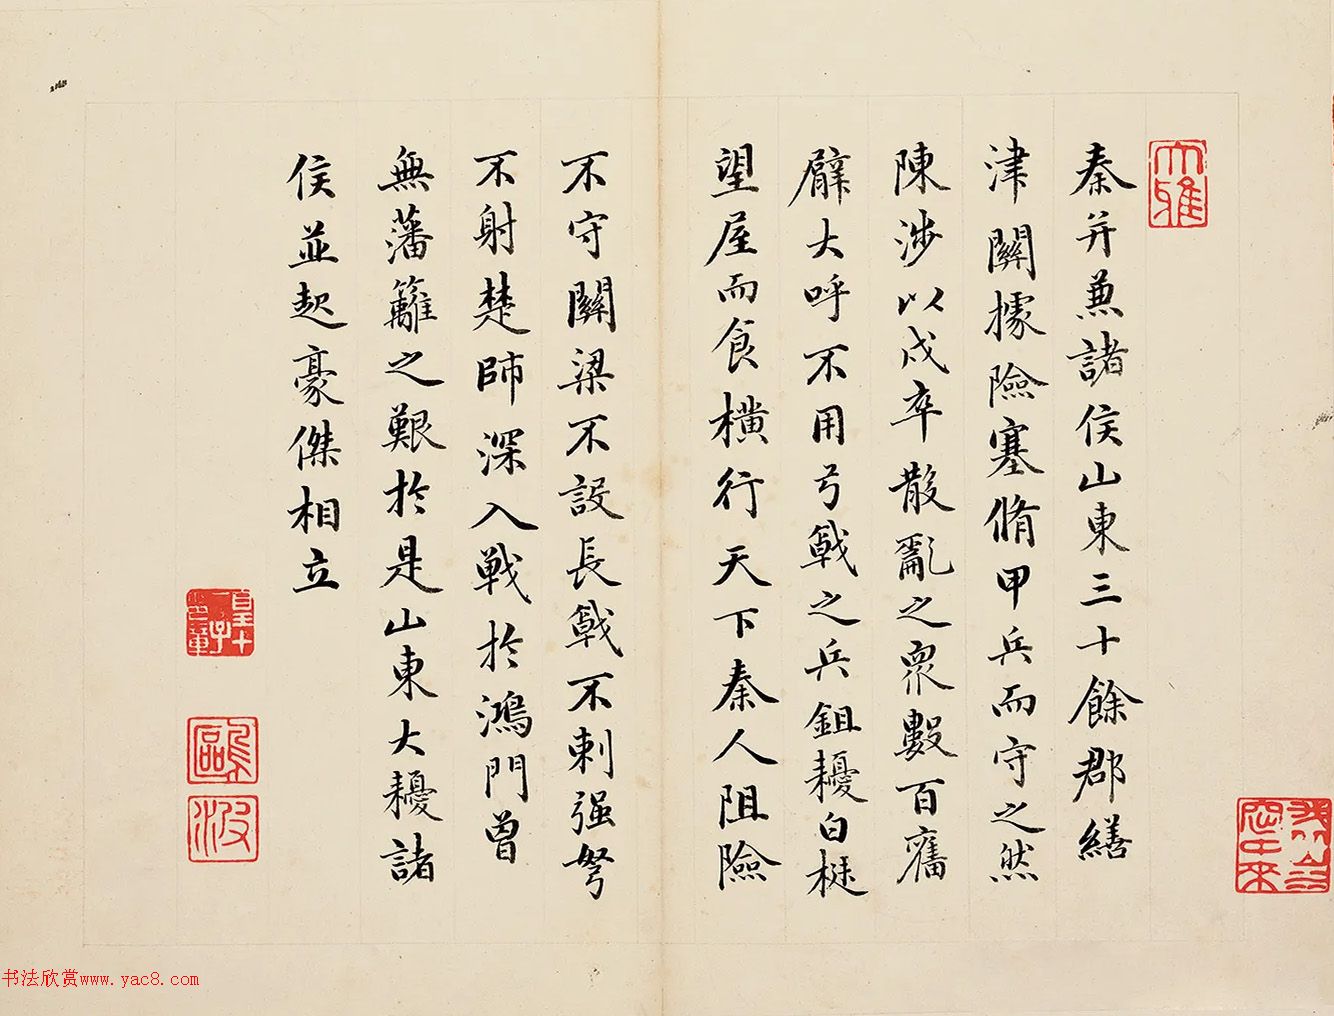 秦并兼諸侯山東三十餘郡繕
津關據險塞脩甲兵而守之然
陳涉以戍卒散亂之衆數百奮
臂大呼不用弓戟之兵鉏耰白梃
望屋而食橫行天下秦人阻險
不守關梁不設長戟不刺强弩
不射楚師深入戰於鴻門曾
無藩籬之艱於是山東大耰諸
侯並起豪傑相立
大雅
皇十一子
歐波
书法欣赏www.yac8.com